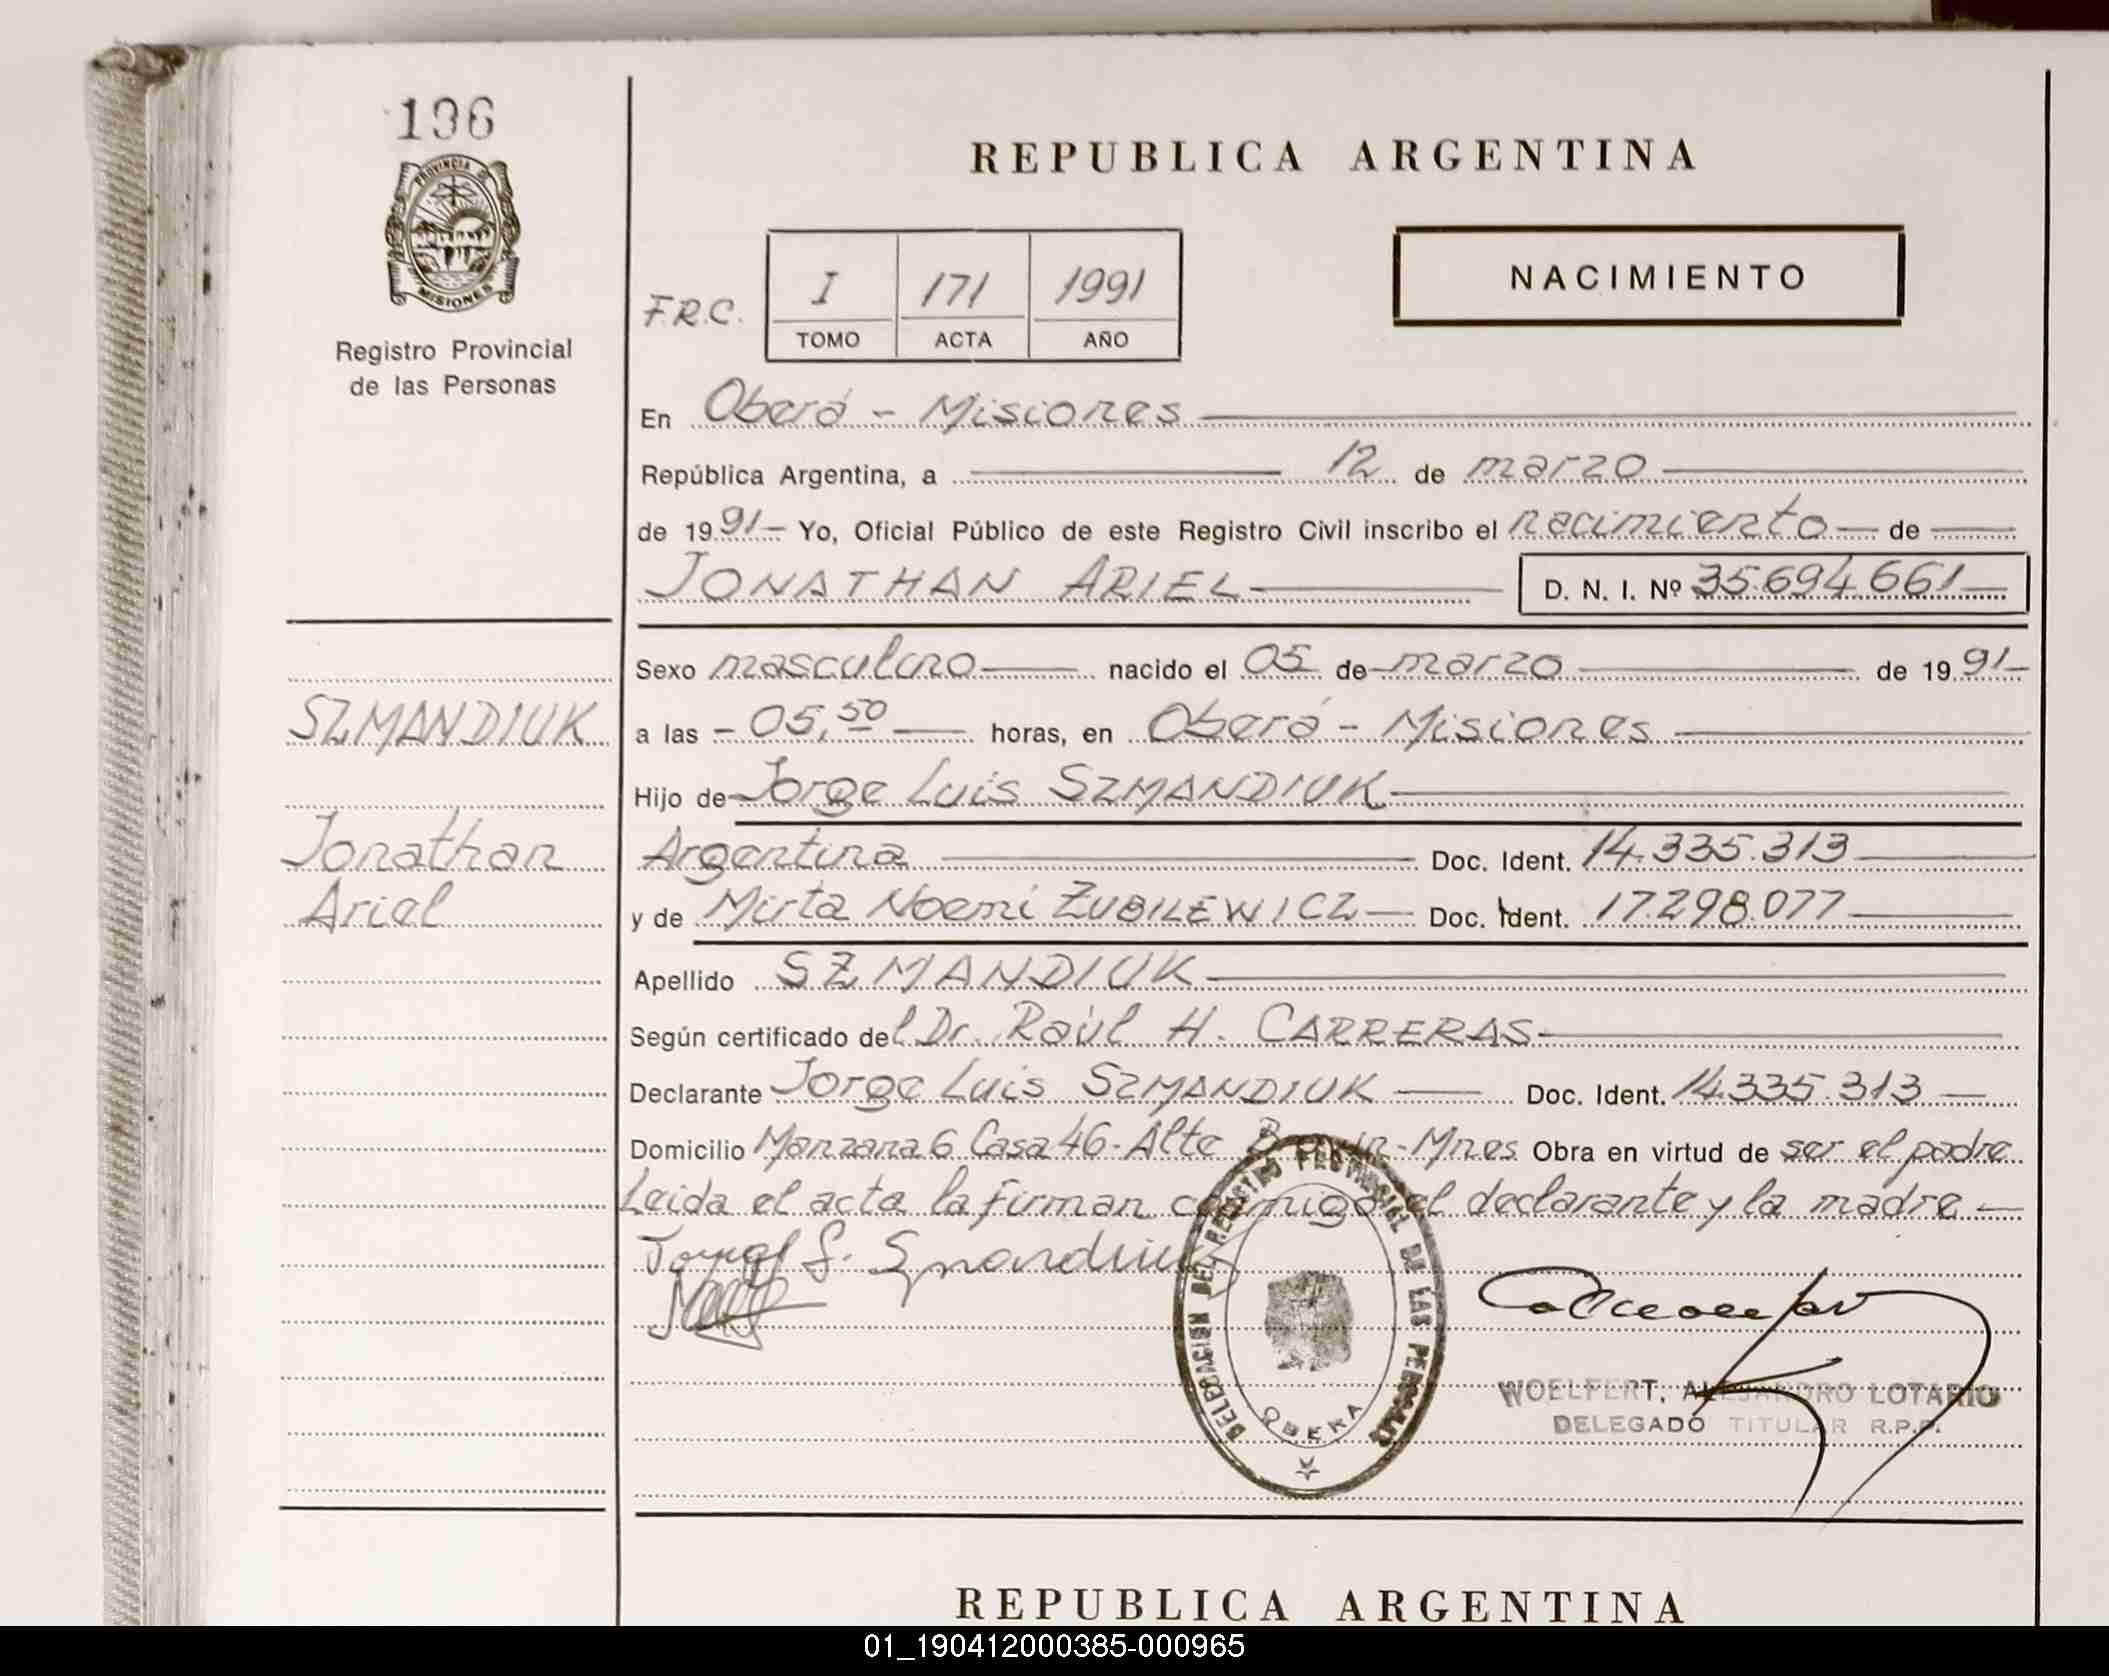 196
PROVINCIA DE
MISIONES
Registro Provincial
de las Personas
REPUBLICA ARGENTINA
F.R.C. I 171 1991
TOMO ACTA AÑO
NACIMIENTO
En Oberá - Misiones
República Argentina, a 12 de marzo
de 1991 - Yo, Oficial Público de este Registro Civil inscribo el nacimiento de
JONATHAN ARIEL D. N. I. Nº 35.694.661
Sexo masculino nacido el 05 de marzo de 1991
SZMANDIUK
a las - 05,50 horas, en Oberá - Misiones
Hijo de Jorge Luis SZMANDIUK
Jonathan
Argentina Doc. Ident. 14.335.313
Ariel
y de Mirta Noemi ZUBILEWICZ Doc. Ident. 17.298.077
Apellido SZMANDIUK
Según certificado del Dr. Raúl H. CARRERAS
Declarante Jorge Luis SZMANDIUK Doc. Ident. 14.335.313
Domicilio Manzana 6 Casa 46 - Alte - Mnes Obra en virtud de ser el padre
Leida el acta la firman conmigo el declarante y la madre
DELEGACION DEL REGISTRO PROVINCIAL DE LAS PERSONAS
OBERA
WOELFERT, ALEJANDRO LOTARIO
DELEGADO TITULAR R.P.P.
REPUBLICA ARGENTINA
01_190412000385-000965